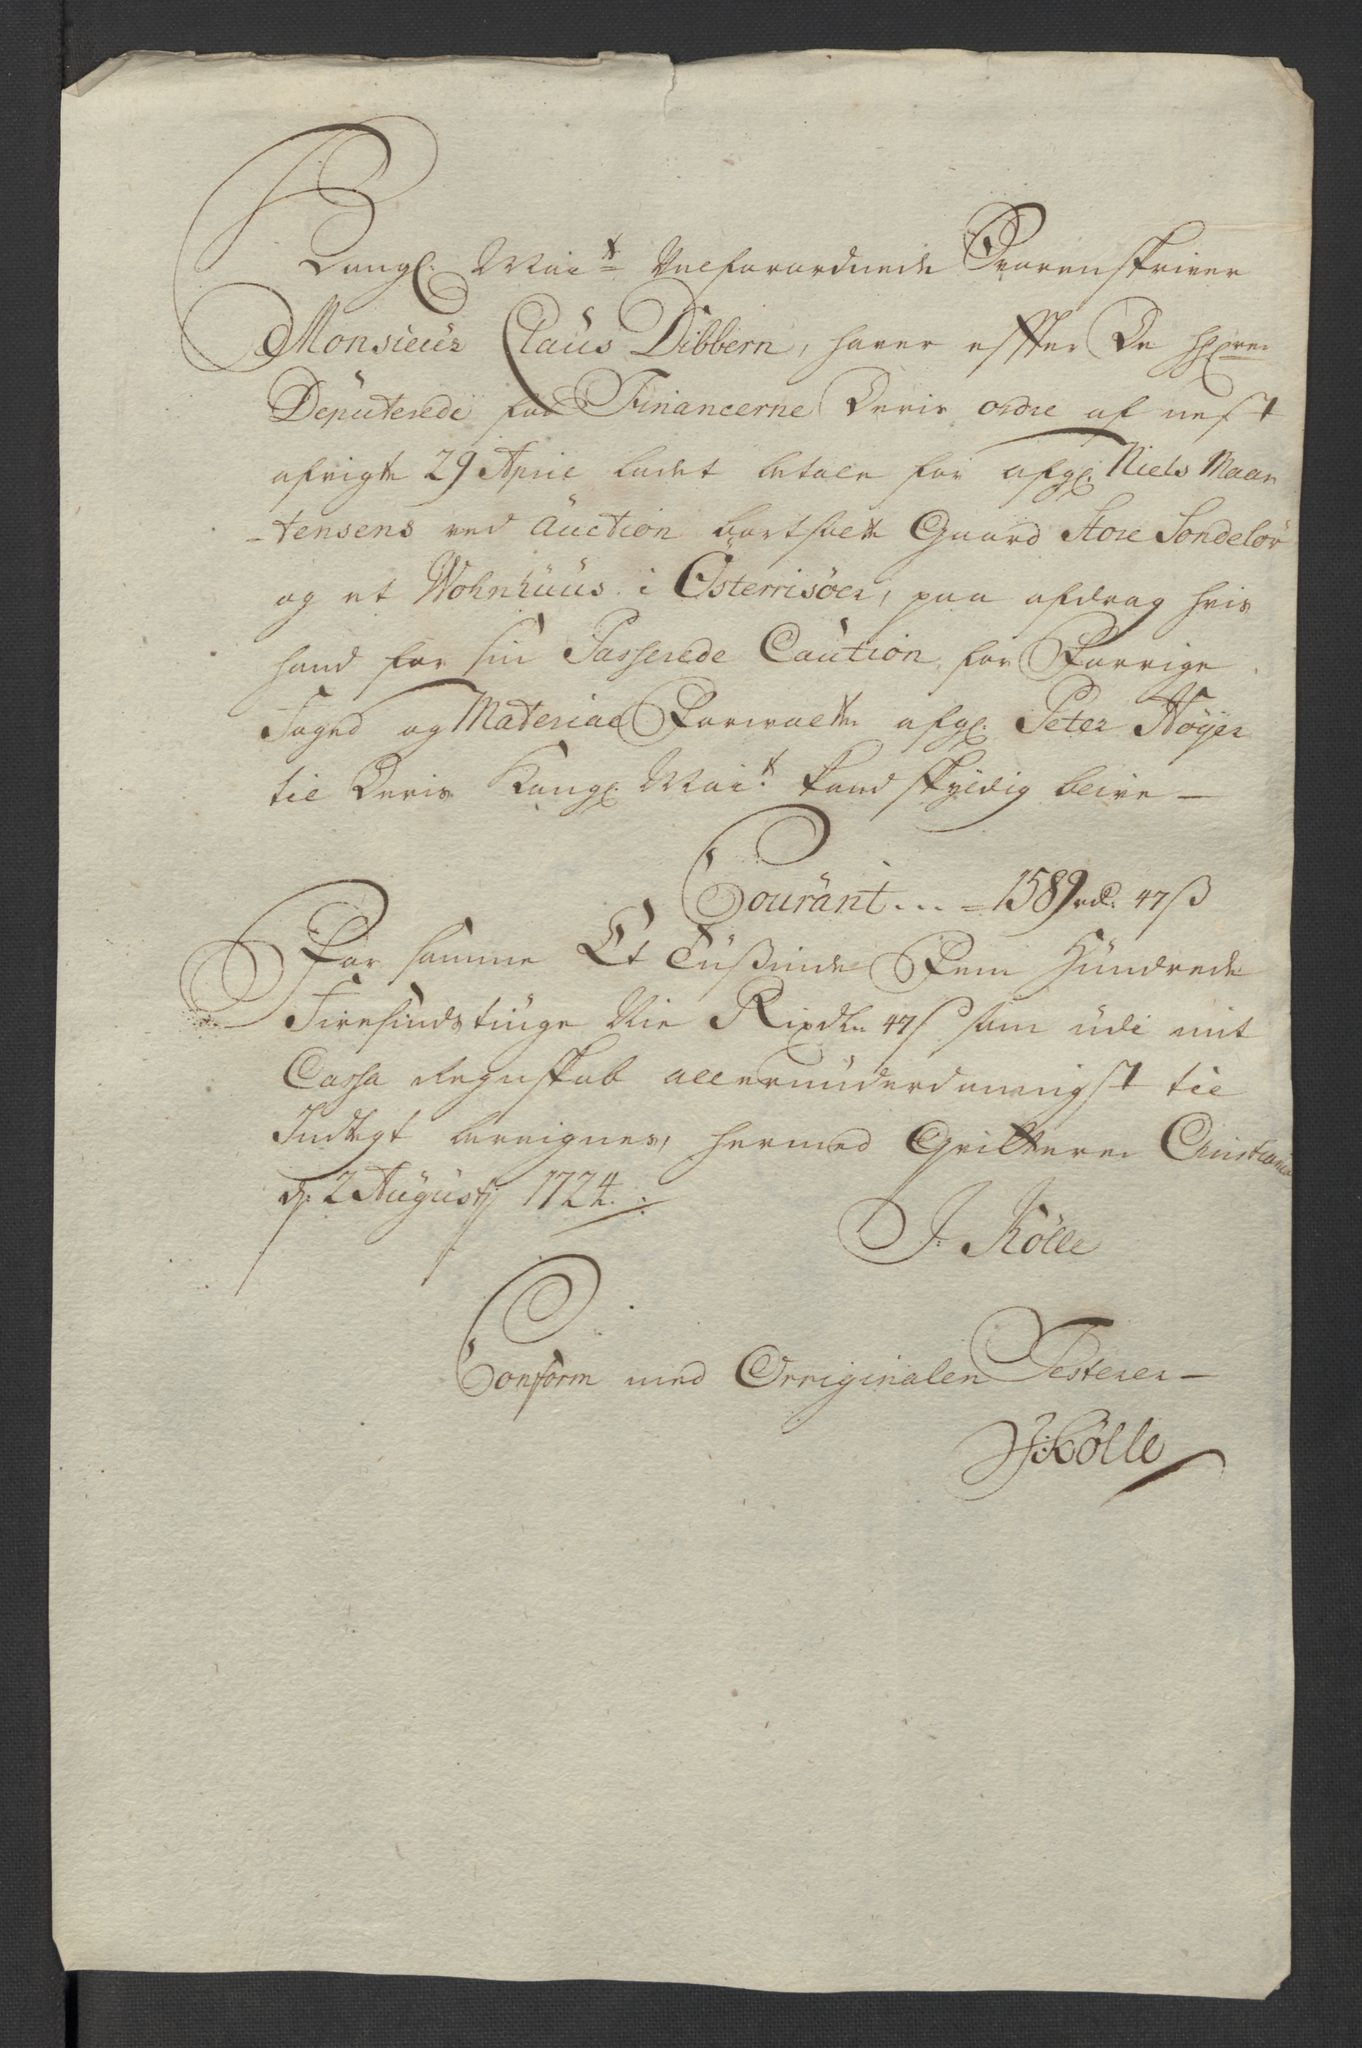 Kongl. Mai:ts Velforordnede Sorenskriver
Monsieur Claus Dibbern, haver effter De
Deputerede for Financerne Deris ordre af nest
afvigte 29 April ladet betale for afg: Niels Maar
-tensens ved Auction bortsolte Gaard Store Sondeløv
og et Wohnhuus i Østerrisøer, paa afdrag hvis
hand for sin Passerede Caution for Forrige
Foged og Material Forvalter afg: Peter Høyer
til Deris Kongl. Mai:t kand skyldig blive —
Courant ... = 1589 rd. 47 ß
For samme Et Tußinde Fem Hundrede
Firesindstiuge Nie Rixdlr 47 ß som udi mit
Cassa Regnskab allerunderdanigst til
Indtegt bereignes, hermed Qvitterer Christiania
d. 2 Augustj 1724.
J. Kølle
Conform med Orriginalen Testerer —
J: Kølle